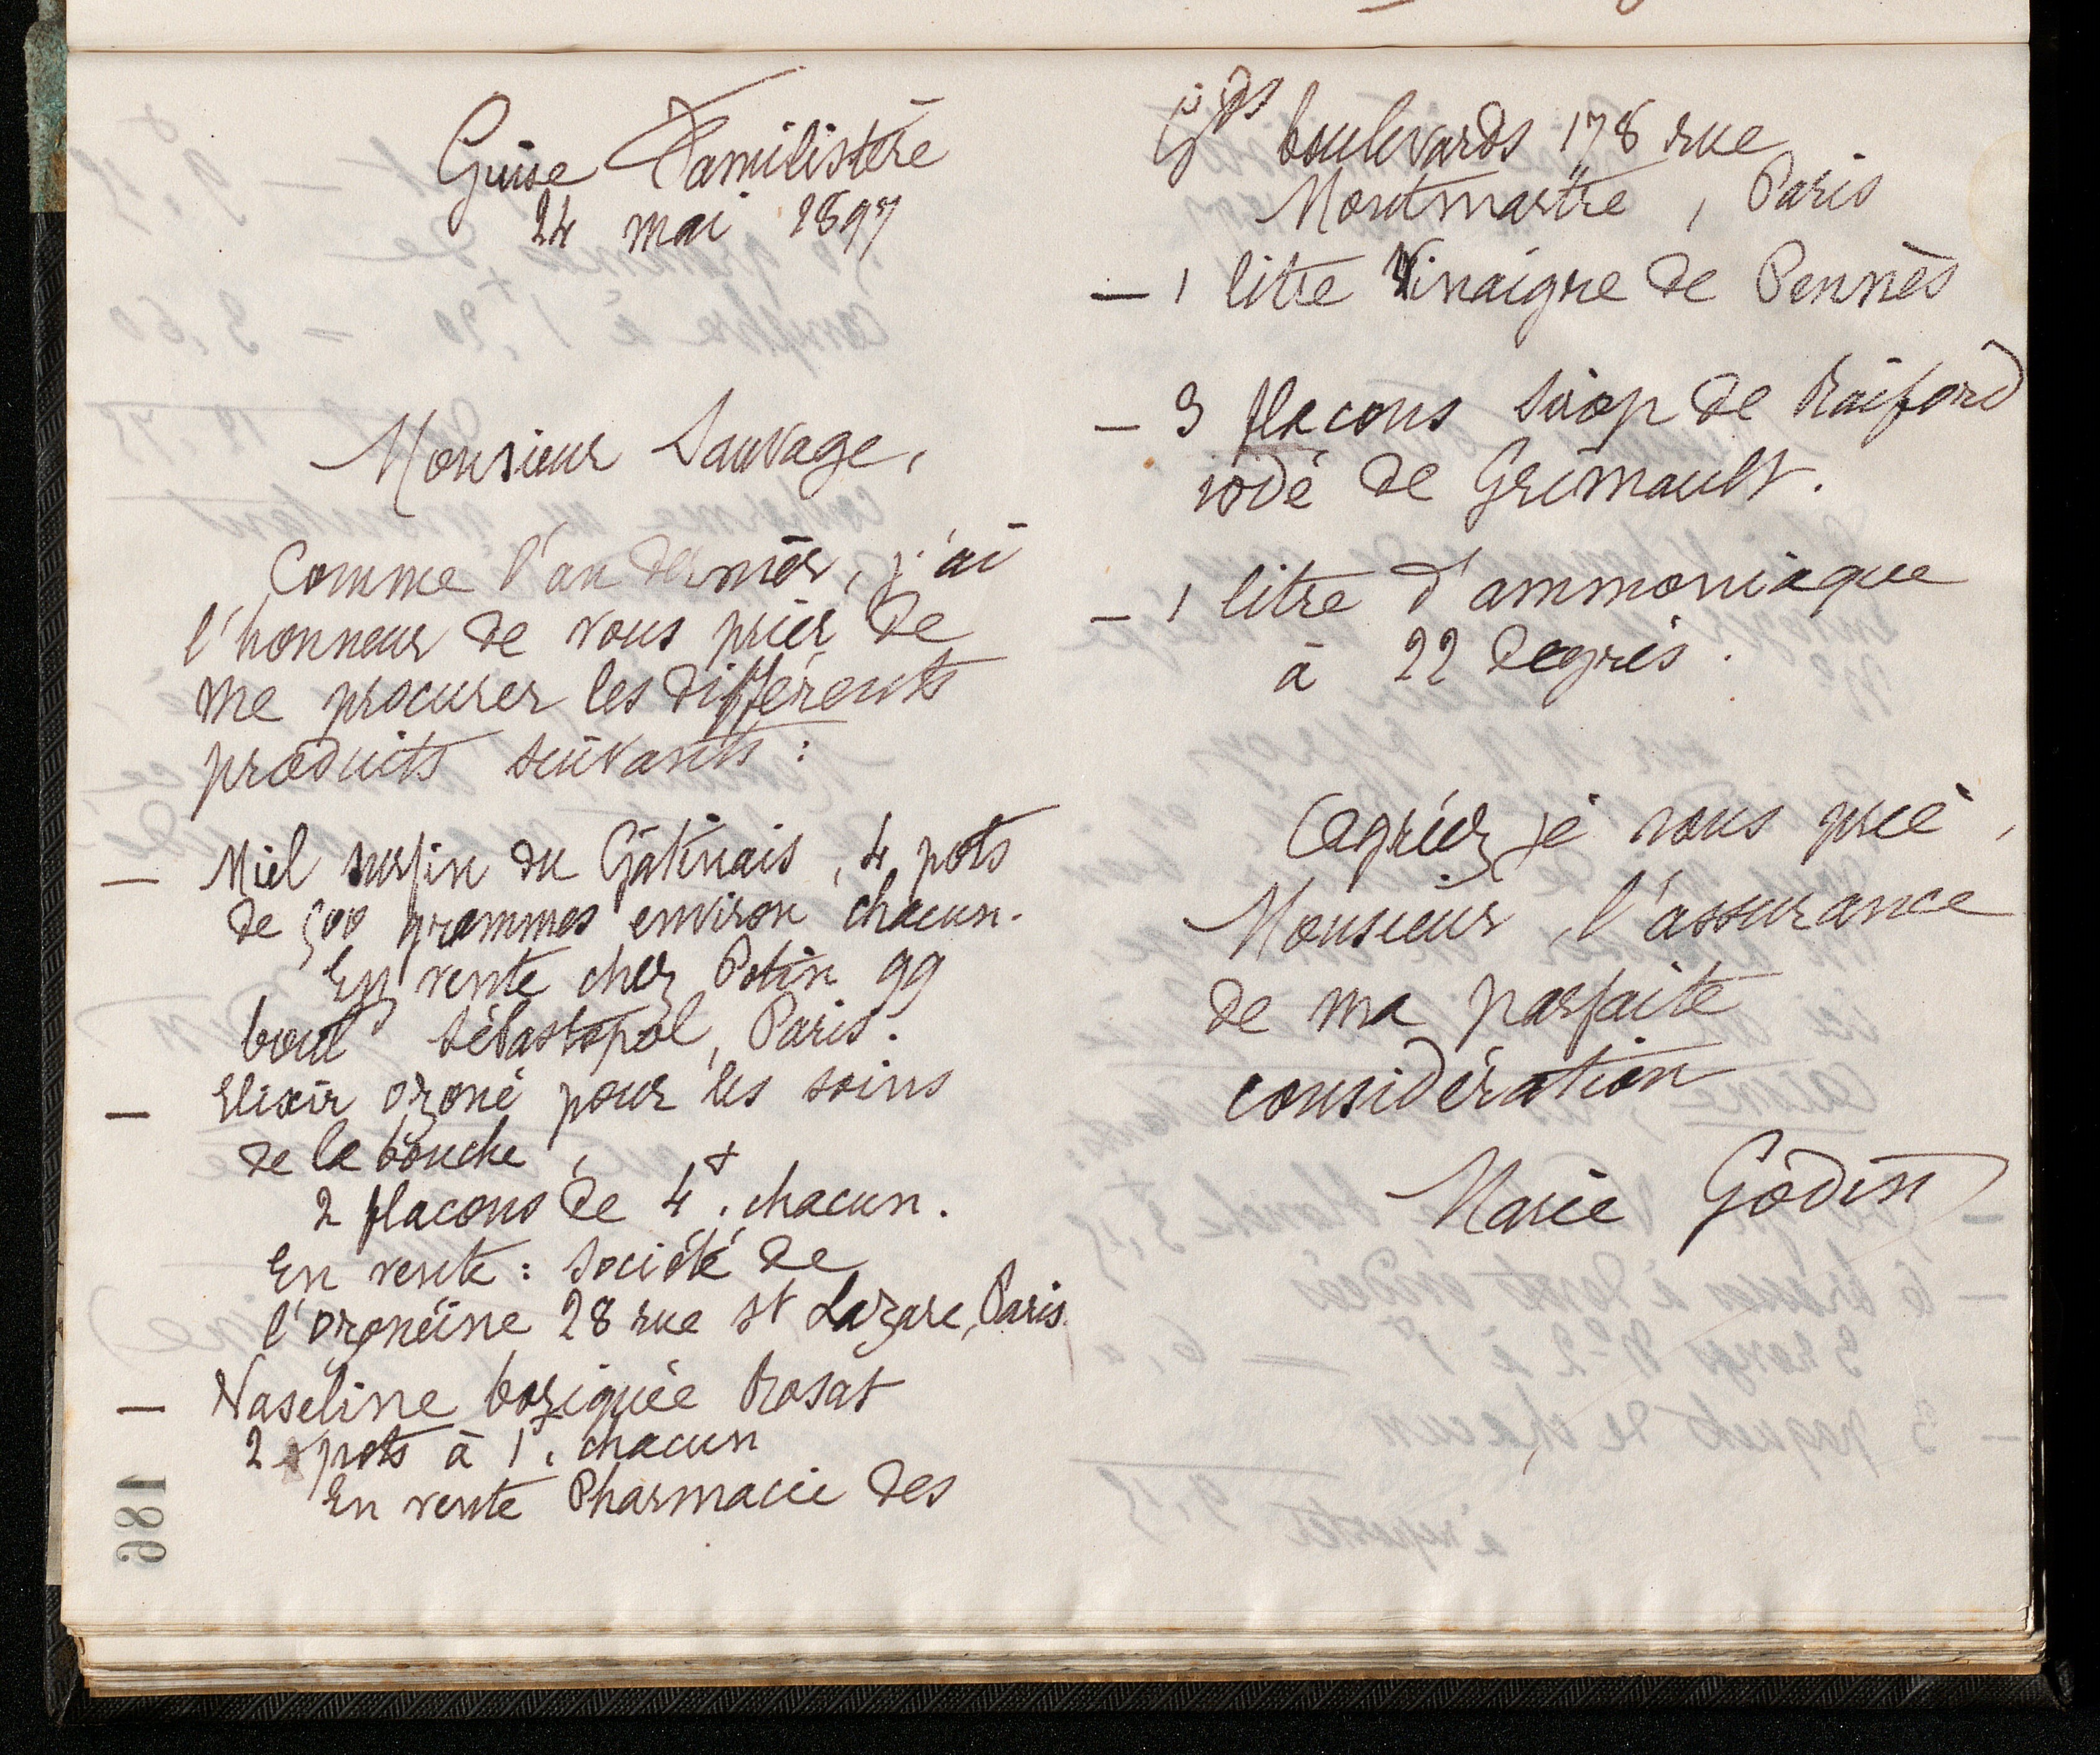 Guise Familistère
24 mai 1897
Monsieur Sauvage,
Comme l'an dernier, j'ai
l'honneur de vous prier de
me procurer les différents
produits suivants :
— Miel surfin du Gâtinais, 4 pots
de 500 grammes environ chacun.
En vente chez Potin 99
boul^d Sébastopol, Paris.
— Elixir ozoné pour les soins
de la bouche,
2 flacons de 4^f. chacun.
En vente : Société de
l'ozonéine 28 rue St Lazare, Paris.
— Vaseline boriquée Rosat
2 pots à 1^f. chacun
En vente Pharmacie des
G^ds boulevards 178 rue
Montmartre, Paris
— 1 litre Vinaigre de Pennès
— 3 flacons sirop de Raiford
iodé de Grimault.
— 1 litre d'ammoniaque
à 22 degrés.
Agréez je vous prie,
Monsieur, l'assurance
de ma parfaite
considération
Marie Godin
186